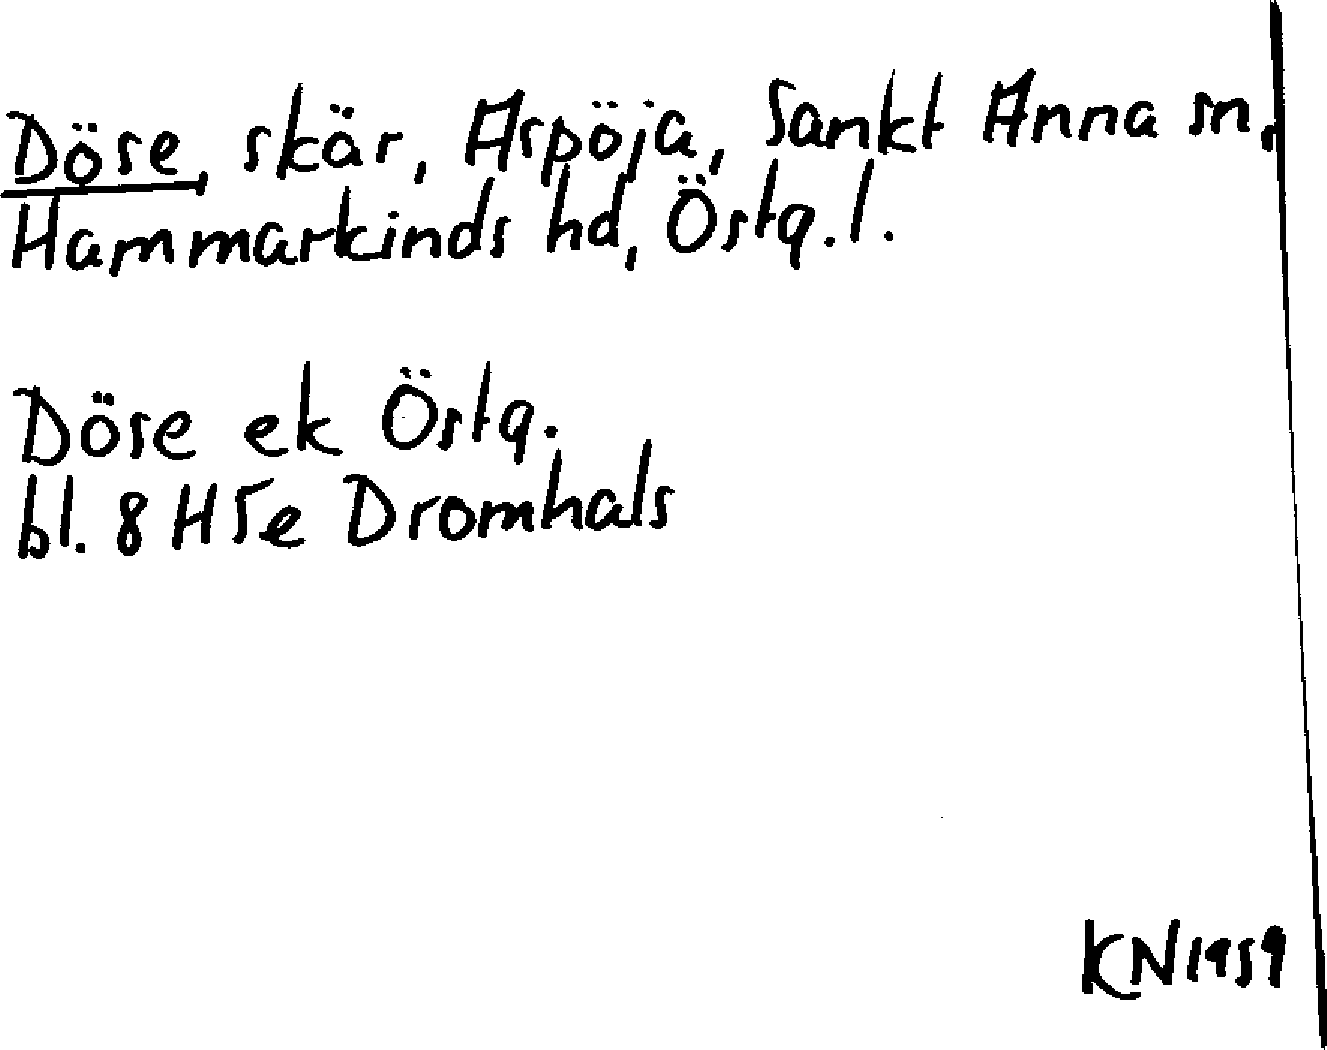 Döse, skär, Aspöja, Sankt Anna sn,
Hammarkinds hd, Östg. l.
Döse ek Östg.
bl. 8 H 5e Dromhals
KN 1959